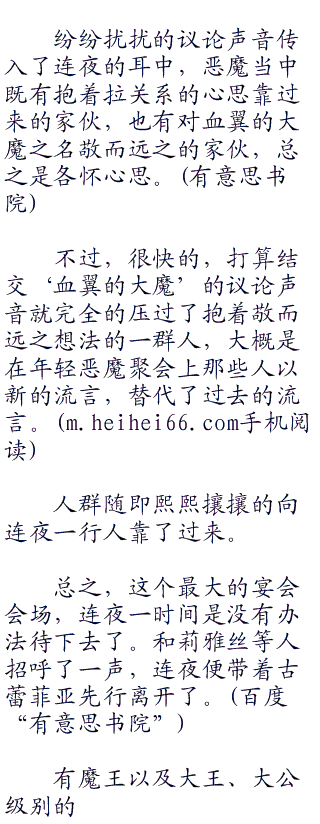 纷纷扰扰的议论声音传
入了连夜的耳中，恶魔当中
既有抱着拉关系的心思靠过
来的家伙，也有对血翼的大
魔之名敬而远之的家伙，总
之是各怀心思。(有意思书
院)
不过，很快的，打算结
交‘血翼的大魔’的议论声
音就完全的压过了抱着敬而
远之想法的一群人，大概是
在年轻恶魔聚会上那些人以
新的流言，替代了过去的流
言。(m.heihei66.com手机阅
读)
人群随即熙熙攘攘的向
连夜一行人靠了过来。
总之，这个最大的宴会
会场，连夜一时间是没有办
法待下去了。和莉雅丝等人
招呼了一声，连夜便带着古
蕾菲亚先行离开了。(百度
“有意思书院”)
有魔王以及大王、大公
级别的